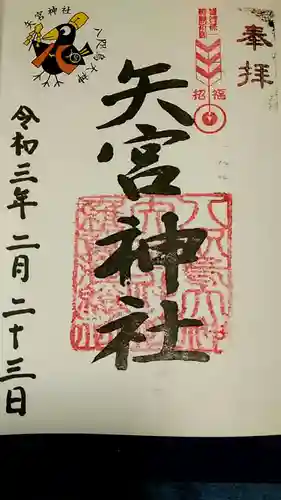 奉拝
招福
矢宮神社
矢宮神社
八咫烏大神
令和三年二月二十三日